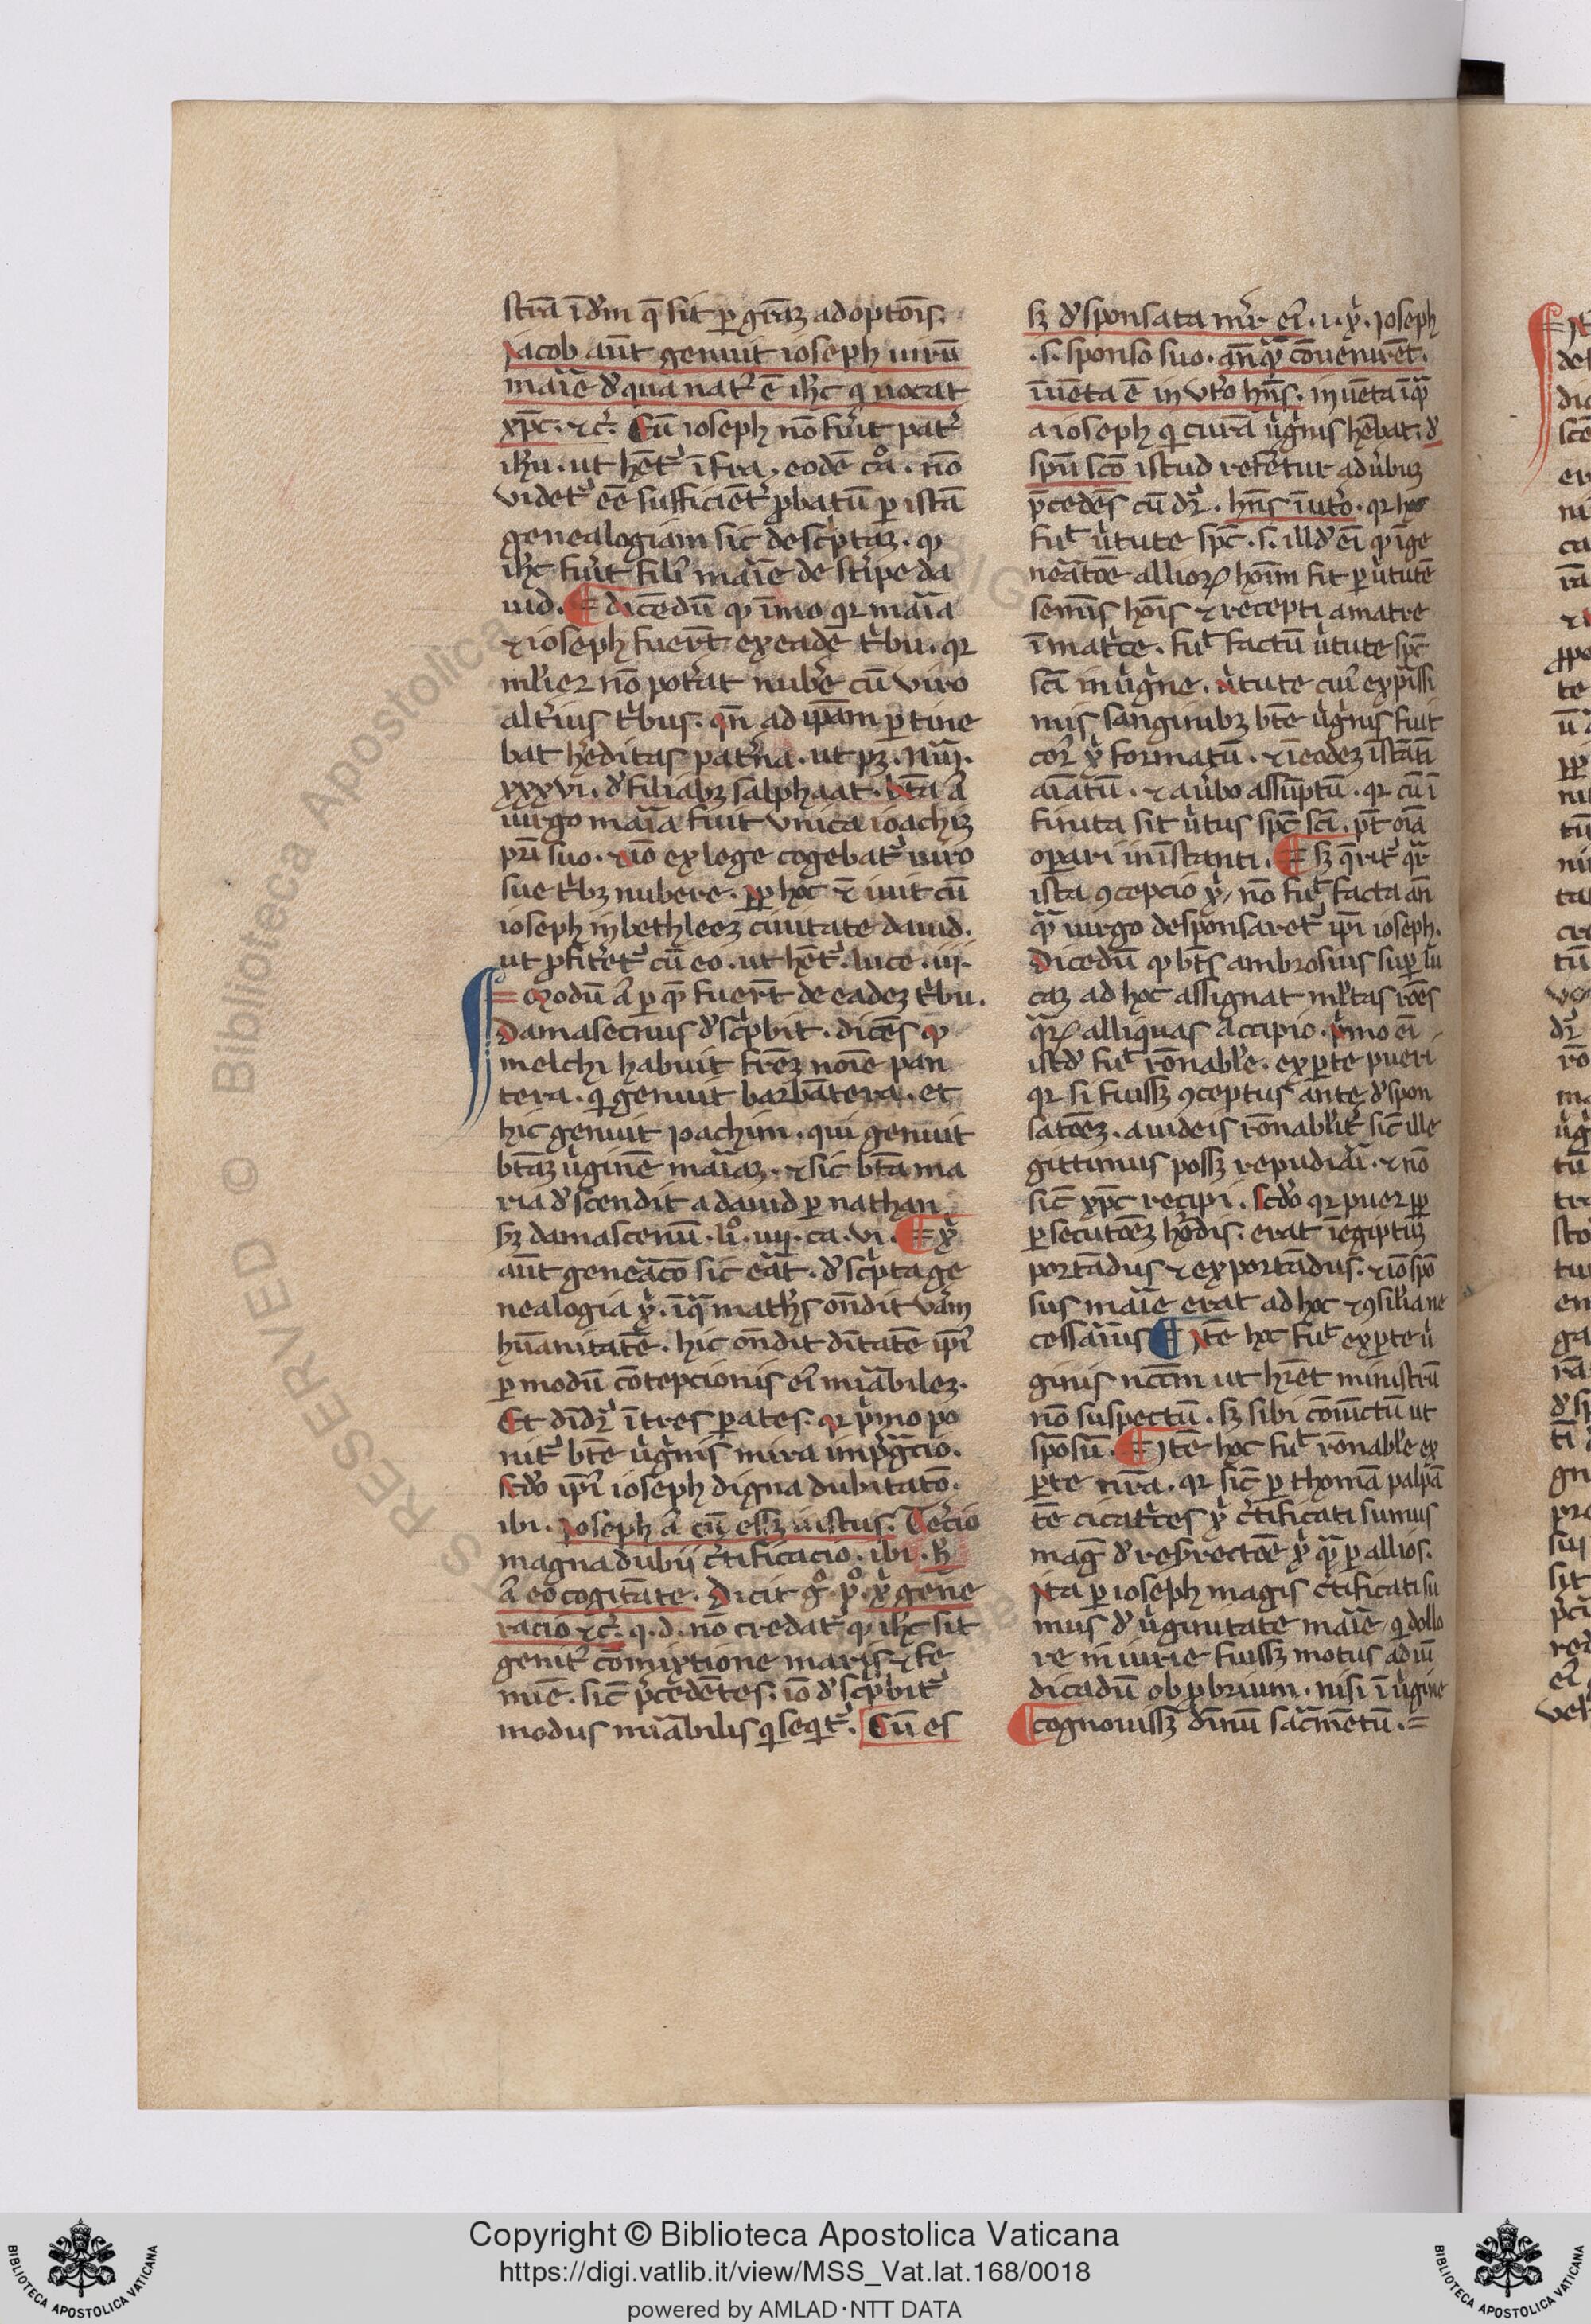 strā ī dm̄ q̄ sit ꝑ grāꝫ adoptōis.
Jacob aut̄ genuit ioseph uirū
maīe ꝺ̓ qua nat᷒ ē ih̄c q̓ uocat᷒
xp̄c. ⁊c̄. Cū ioseph nō fuit pat᷒
ih̄u. ut hēt᷒ īfra. eodē cᵒ. nō
videt᷒ eē sufficiēt᷒ ꝓbatū ꝑ istā
genealogiam sic descͥptaꝫ. ꝙ
ih̄c fuit fili᷒ maīe de stirpe da
uid. ¶ dicēdū ꝙ īmo qꝛ maīa
⁊ ioseph fuer̄t ex eadē tͥbu. qꝛ
ml̓ier nō pot̓at nub̓e cū viro
alt̓ius tͥbus. qn̄ ad ip̄am ꝑtine
bat h̓editas pat̓na. ut pꝫ. nūi.
xxxvi. ꝺ̓ filiabꝫ salphaat. bt̄a ā
uirgo maīa fuit vnica ioachiꝫ
pr̄i suo. ⁊ iō ex lege cogebat᷒ uiro
sue tͥbꝫ nubere. ꝓp̄ hoc ⁊ iuit cū
ioseph in bethleeꝫ ciuitate dauid.
ut ꝓfitet᷒ cū eo. ut hēt᷒ luce. iij.
Modū ā ꝑ quē fuer̄t de eadeꝫ tͥbu.
Damascenus ꝺ̓scͥbit. dicēs ꝙ
melchi habuit frēꝫ noīe pan
tera. qͥ genuit barbātera. et
hic genuit ioachim. qui genuit
bt̄aꝫ uͥginē maīaꝫ. ⁊ sic bt̄a ma
ria ꝺ̓scendit a dauid ꝑ nathan
sꝫ damascenū. liᵒ. iiij. ca. vi. ¶ xͥ
aut̄ geneāco sic erāt. ꝺ̓scͥpta ge
nealogia xͥ. ī qͣ math̓s on̄dit v̓am
hūanitatē. hic on̄dit dītatē ip̄i᷒
ꝑ modū cōtepcionis ei᷒ mīabileꝫ.
Et diīdꝛ᷒ ī tres ꝑates. qꝛ pͥmo po
nit᷒ bt̄e uͥgnis mira īmpͣgcio.
scd̓o ip̄i᷒ ioseph digna dubitatō.
ibi. Joseph ā cū esꝫ iustus. Tercio
magna dubij c̓tificacio. ibi. H̄
ā eo cogitāte. Dicit gᵒ. pᵒ. xͥ gene
racio ⁊c̄. q. d. nō credat᷒ ꝙ ih̄c sit
genit᷒ cōmixtione maris ⁊ fe
mīe. sic̄ p̓cedētes. iō ꝺ̓scͥbit᷒
modus mīabilis qͥ seqͥt᷒. Cū es
sꝫ ꝺ̓sponsata mr̄ ei᷒. i. xͥ. ioseph
.s. sponso suo. an̄qͣ cōuenirēt.
īuēta ē in vt̓o hn̄s. inuēta īqͣ
a ioseph qͥ curā uͥgnis hēbat. ꝺ̓
spū scō istud refertur ad u̓buꝫ
p̄cedēs cū dꝛ᷒. hn̄s ī ut̓o. qꝛ hoc
fuͭ uͥtute spc̄. s. illd̓ ei ꝙ ī ge
neātōe allioꝝ hoīm fit ꝑ uͥtutē
semīs hoīs ⁊ recepti a matre
ī matͥce. fuͭ factū uͥtute spc̄
sc̄i in uͥgne. uͥtute cui᷒ ex pͥssi
mis sanginibꝫ bt̄e uͥgnis fuit
cor᷒ xͥ formatū. ⁊ ī eodeꝫ istāti
aīatū. ⁊ a u̓bo assūptū. qꝛ cū ī
finita sit uͥtus spc̄ sc̄i. pt̄ oīa
oꝑari in īstanti. ¶ sꝫ qͥrit᷒ qͣr
ista ꝯcepcio xͥ nō fuͭ facta an̄
qͣ uirgo desponsaret᷒ ip̄i ioseph.
Dicēdū ꝙ bt̄s ambrosius suꝑ lu
caꝫ ad hoc assignat ml̓tas rōes
qͣꝝ alliquas accipio. pͥmo ei
istd̓ fuͭ rōnabl̓e. ex ꝑte pueri
qꝛ si fuissꝫ ꝯceptus ante ꝺ̓spon
satōeꝫ. a iudeis rōnabl̓it᷒ sic̄ ille
gittimus possꝫ repudiai. ⁊ nō
sic̄ xp̄c recipi. Scd̓o qꝛ puer ꝓp̄
ꝑsecutōeꝫ h̓odis. erat ī egiptuꝫ
portādus ⁊ exportādus. ⁊ iō spō
sus maīe erat ad hoc ⁊ ꝯsiliū ne
cessarius ¶ Jtē hoc fuͭ ex ꝑte uͥ
ginis nccm̄ ut hr̄et ministrū
nō suspectū. sꝫ sibi cōiūctū ut
spōsū. ¶ Jtē hoc fuͭ rōnabl̓e ex
ꝑte nr̄a. qꝛ sic̄ ꝑ thomā palpā
tē cicatͥces xͥ c̓tificati sumus
mag̓ ꝺ̓ resrectōe xͥ qͣ ꝑ allios.
Jta ꝑ ioseph magis c̓tificati su
mus ꝺ̓ uͥginitate maīe qͥ dollo
re iniurie fuissꝫ motus ad iu
dicādū obꝓbrium. nisi ī uͥgine
cognouissꝫ dīnū sacͣmētū.
Copyright © Biblioteca Apostolica Vaticana
https://digi.vatlib.it/view/MSS_Vat.lat.168/0018
powered by AMLAD·NTT DATA
BIBLIOTECA APOSTOLICA VATICANA
BIBLIOTECA APOSTOLICA VATICANA